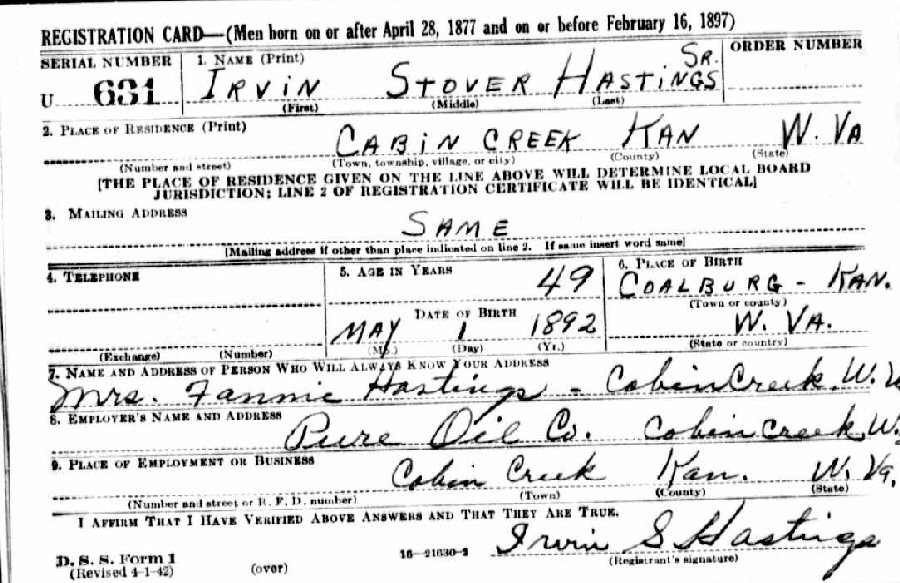 REGISTRATION CARD—(Men born on or after April 28, 1877 and on or before February 16, 1897)
SERIAL NUMBER 1. NAME (Print) ORDER NUMBER
U 631 IRVIN STOVER HASTINGS SR.
(First) (Middle) (Last)
2. PLACE OF RESIDENCE (Print)
CABIN CREEK KAN W. VA
(Number and street) (Town, township, village, or city) (County) (State)
[THE PLACE OF RESIDENCE GIVEN ON THE LINE ABOVE WILL DETERMINE LOCAL BOARD
JURISDICTION; LINE 2 OF REGISTRATION CERTIFICATE WILL BE IDENTICAL]
3. MAILING ADDRESS
SAME
[Mailing address if other than place indicated on line 2. If same insert word same]
4. TELEPHONE 5. AGE IN YEARS 6. PLACE OF BIRTH
49 COALBURG - KAN.
DATE OF BIRTH (Town or county)
MAY 1 1892 W. VA.
(Exchange) (Number) (Mo.) (Day) (Yr.) (State or country)
7. NAME AND ADDRESS OF PERSON WHO WILL ALWAYS KNOW YOUR ADDRESS
Mrs. Fannie Hastings - Cabin Creek, W.V
8. EMPLOYER'S NAME AND ADDRESS
Pure Oil Co. Cabin Creek, W.
9. PLACE OF EMPLOYMENT OR BUSINESS
Cabin Creek Kan. W. Va.
(Number and street or R. F. D. number) (Town) (County) (State)
I AFFIRM THAT I HAVE VERIFIED ABOVE ANSWERS AND THAT THEY ARE TRUE.
D. S. S. Form 1 16—21630-2 Irvin S Hastings
(Revised 4-1-42) (over) (Registrant's signature)